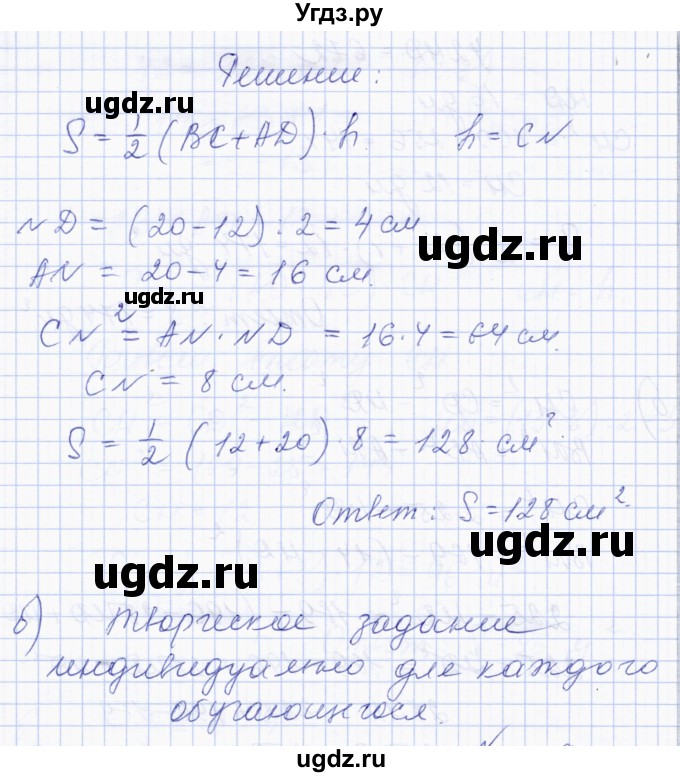 Угдз.ру
Решение:
S = 1/2 (BC + AD) · h.   h = CN
ugdz.ru
ND = (20 - 12) : 2 = 4 см
ugdz.ru
AN = 20 - 4 = 16 см.
ugdz.ru
CN² = AN · ND = 16 · 4 = 64 см.
CN = 8 см.
S = 1/2 (12 + 20) · 8 = 128 см².
Ответ: S = 128 см².
ugdz.ru
ugdz.ru
б) творческое задание
индивидуально для каждого
обучающегося.
ugdz.ru